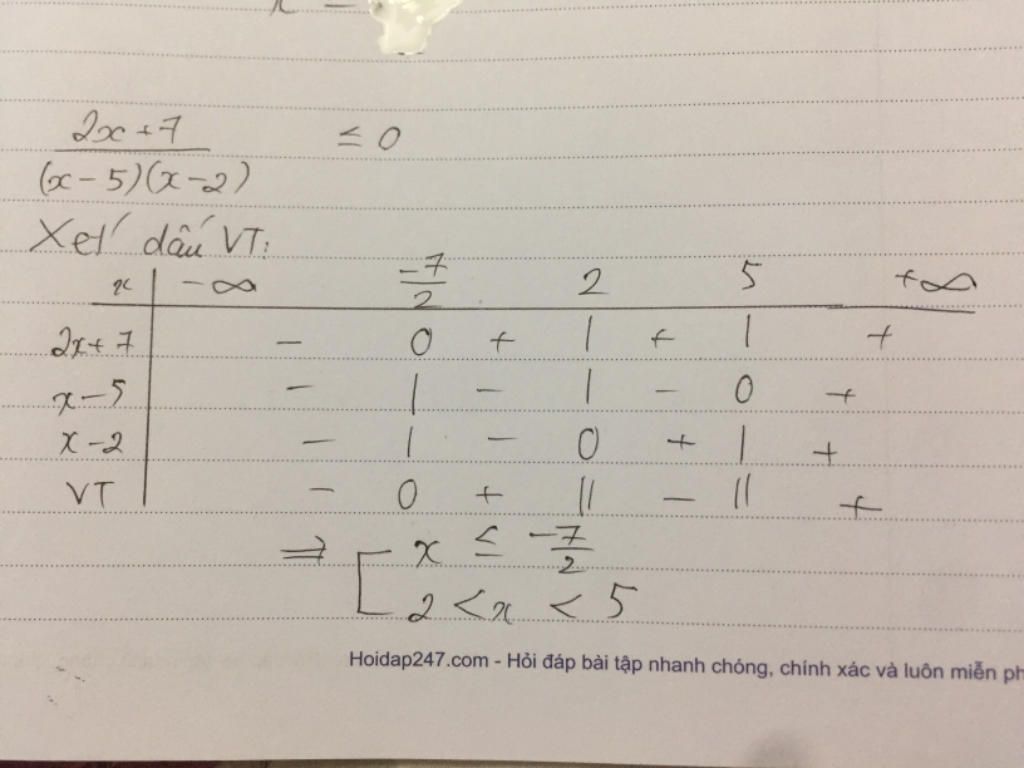 2x+7 ≤ 0
(x-5)(x-2)
Xét dấu VT:
x | -∞ -7/2 2 5 +∞
2x+7 | - 0 + | + | +
x-5 | - | - | - 0 +
x-2 | - | - 0 + | +
VT | - 0 + || - || +
⇒ [ x ≤ -7/2
2 < x < 5
Hoidap247.com - Hỏi đáp bài tập nhanh chóng, chính xác và luôn miễn ph